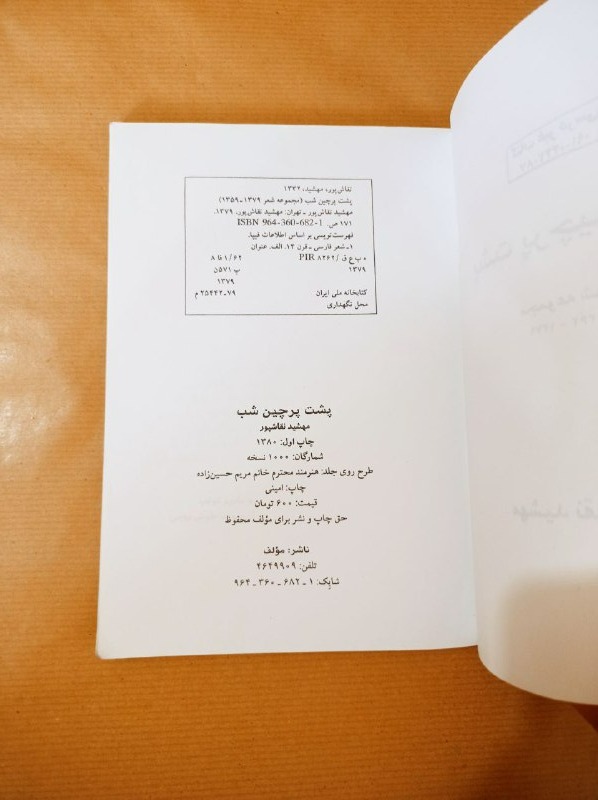 نقاش‌پور، مهشید، ۱۳۳۲
پشت پرچین شب (مجموعه شعر ۱۳۷۹-۱۳۵۹)
مهشید نقاش‌پور ـ تهران: مهشید نقاش‌پور، ۱۳۷۹.
۱۷۱ ص. ISBN 964-360-682-1
فهرست‌نویسی بر اساس اطلاعات فیپا.
۱ـ شعر فارسی ـ قرن ۱۴. الف. عنوان
PIR ۸۲۶۲/ ۸ فا ۱/۶۲
۱۳۷۹ پ ۵۷۱ن
۱۳۷۹
کتابخانه ملی ایران ۷۹ـ۲۵۴۴۲ م
محل نگهداری
پشت پرچین شب
مهشید نقاشپور
چاپ اول: ۱۳۸۰
شمارگان: ۱۰۰۰ نسخه
طرح روی جلد: هنرمند محترم خانم مریم حسین‌زاده
چاپ: امینی
قیمت: ۶۰۰ تومان
حق چاپ و نشر برای مؤلف محفوظ
ناشر: مؤلف
تلفن: ۴۶۴۹۹۰۹
شابک: ۱ ـ ۶۸۲ ـ ۳۶۰ ـ ۹۶۴